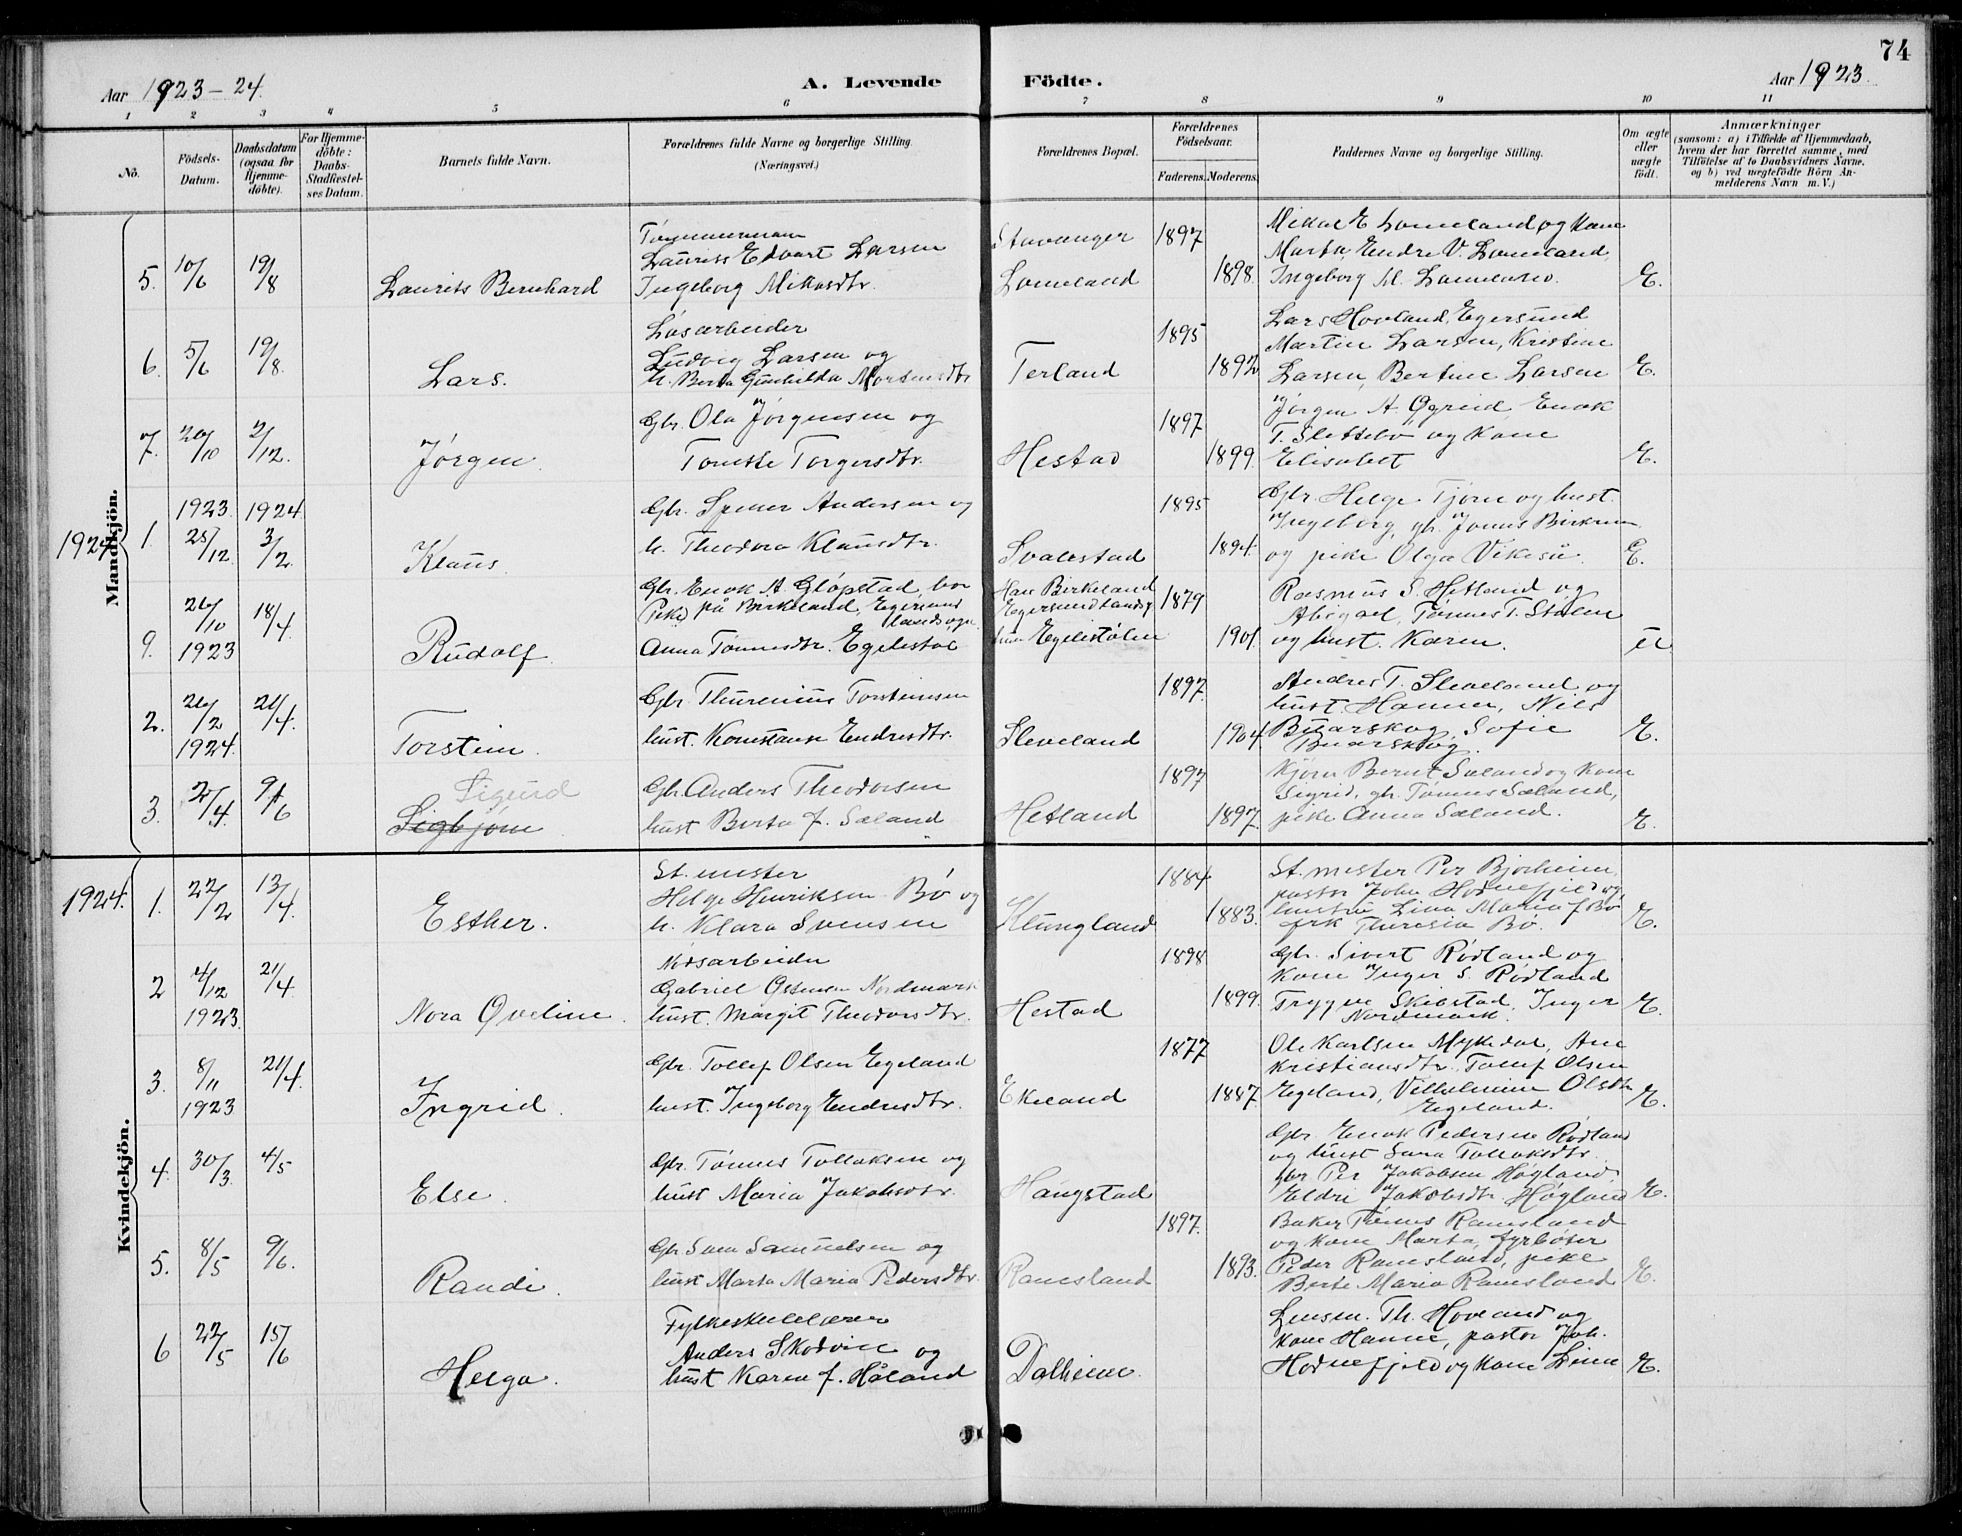 74
Aar 1923-24.
A. Levende Födte.
Aar 1923.
1 2 3 4 5 6 7 8 9 10 11
No.
Födsels-Datum.
Daabsdatum (ogsaa for Hjemme-döbte).
For Hjemme-döbte: Daabs-Stadfæstel-ses Datum.
Barnets fulde Navn.
Forældrenes fulde Navne og borgerlige Stilling. (Næringsvei.)
Forældrenes Bopæl.
Forældrenes Födselsaar.
Faderens. Moderens.
Faddernes Navne og borgerlige Stilling.
Om ægte eller uægte födt.
Anmærkninger
(saasom: a) i Tilfælde af Hjemmedaab,
hvem der har forrettet samme, med
Tilföielse af to Daabsvidners Navne.
og b) ved uægtefödte Börn An-
melderens Navn m. V.)
Mandkjön.
5. 10/6 19/8 Laurits Bernhard
Tømmermann
Laurits Edvart Larsen
Ingeborg Mikalsdtr.
Stavanger
Lomeland
1897
1898.
Mikal E Lomeland og kone
Marta, Endre V. Lomeland,
Ingeborg M. Lomeland.
E.
6. 5/6 19/8. Lars.
Løsarbeider
Ludvig Larsen og
h. Berta Gunhilda Mortensdtr
Terland
1895
1892
Lars Hovland, Egersund
Martin Larsen, Kristine
Larsen, Bertine Larsen
E.
7. 20/10 2/12. Jørgen.
Gbr. Ola Jørgensen og
Tomette Torgersdtr.
Hestad
1897
1899.
Jørgen A. Øgreid, Enok
T. Slettebø og kone
Elisabet
E.
1924
1. 1923. 25/12 1924 3/2 Klaus.
Gbr. Spener Andersen og
h. Theodora Klausdtr.
Svalestad
1895
1894.
Gbr. Helge Tjørn og hust.
Ingeborg, gbr. Jonas Birkrem
og pike Olga Vikeså.
E.
9. 26/10 1923 18/4 Rudolf.
Gbr. Enok A. Gløpstad, bor
på Birkeland, Egersund landsogn.
Pike
Anna Tønnesdtr. Egelestøl
Han Birkeland
Egersund landsg.
hun Egelestølen
1879
1901.
Rasmus S. Hetland og
Abigael, Tønnes T. Stølen
og hust. Karen.
U
2. 26/2 1924. 21/4. Torstein.
Gbr. Thurenius Torsteinsen
hust. Konstanse Endresdtr.
Sleveland
1897.
1904
Andreas T. Sleveland og
hust. Hanna, Nils
Buarskog, Sofie
Buarskog.
E.
3. 2/4 9/6 Sigurd
Sigbjørn.
Gbr. Anders Theodorsen
hust Berta f. Sæland
Hetland
1897
1897.
Bernt Sæland og kone
Sigrid, gbr. Tønnes Sæland,
pike Anna Sæland.
E.
Kvindekjön.
1924.
1. 22/2 13/4. Esther.
St. mester
Helge Henriksen Bø og
h. Klara Svensen
Klungland
1884
1883.
St. mester Per Bjorheim,
pastor John Hodnefjeld og
hustru Lina Maria f Bø
frk Theresia Bø.
E.
2 4/12 1923. 21/4. Nora Oveline.
Gabriel Ostensen Nordmark
hust. Margit Theodorsdtr.
Hestad
1898
1899.
Gbr. Sivert Rødland og
kone Inger S. Rødland
Trygve Skeistad, Inger
Nordmark.
E.
3. 8/11 1923 21/4. Ingrid.
Gbr. Tollef Olsen Egeland
hust. Ingeborg Endresdtr.
Ekeland
1877
1887.
Ole Karlsen Mykedal, Ane
Kristiansdtr. Tollef Olsen
Egeland, Vilhelmine Olsdtr
Egeland.
E.
4. 30/3. 4/5 Else.
Gbr. Tønnes Tollaksen og
hust Maria Jakobsdtr.
Haugstad
Gbr. Enok Pedersen Rødland
og hust Sara Tollaksdtr.
gbr Per Jakobsen Høgland,
Eldri Jakobsdtr. Høgland
E.
5. 8/5 9/6. Randi.
Gbr Sven Samuelsen og
hust Marta Maria Pedersdtr.
Ramsland
1897.
1893.
Baker Tønnes Ramsland
og kone Marta, fyrbøter
Peder Ramsland, pike
Berte Maria Ramsland
E.
6 22/5 15/6 Helga.
Fylkesskulelærer
Anders Skodvin og
hust Karen f. Håland
Dalheim.
Lensm. Th. Hovland og
kone Hanne, pastor Joh.
Hodnefjeld og kone Lina
E.